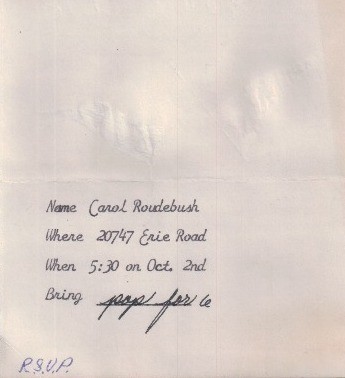 Name Carol Roudebush
Where 20747 Erie Road
When 5:30 on Oct. 2nd
Bring pop for 6
R.S.V.P.